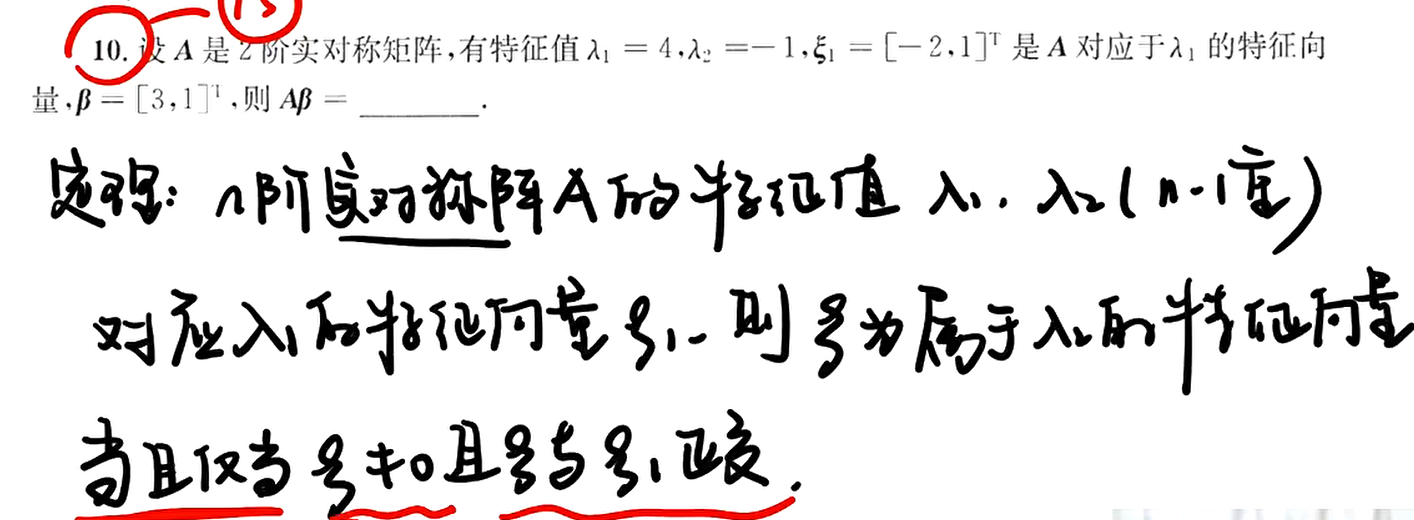 13
10. 设 A 是 2 阶实对称矩阵,有特征值 λ₁ = 4,λ₂ =－1,ξ₁ = [－2,1]ᵀ 是 A 对应于 λ₁ 的特征向
量,β = [3,1]ᵀ,则 Aβ = ________.
定理: n阶实对称阵A的特征值 λ₁. λ₂(n-1重)
对应λ₁的特征向量ξ₁. 则ξ为属于λ₂的特征向量
当且仅当ξ≠0且ξ与ξ₁正交.